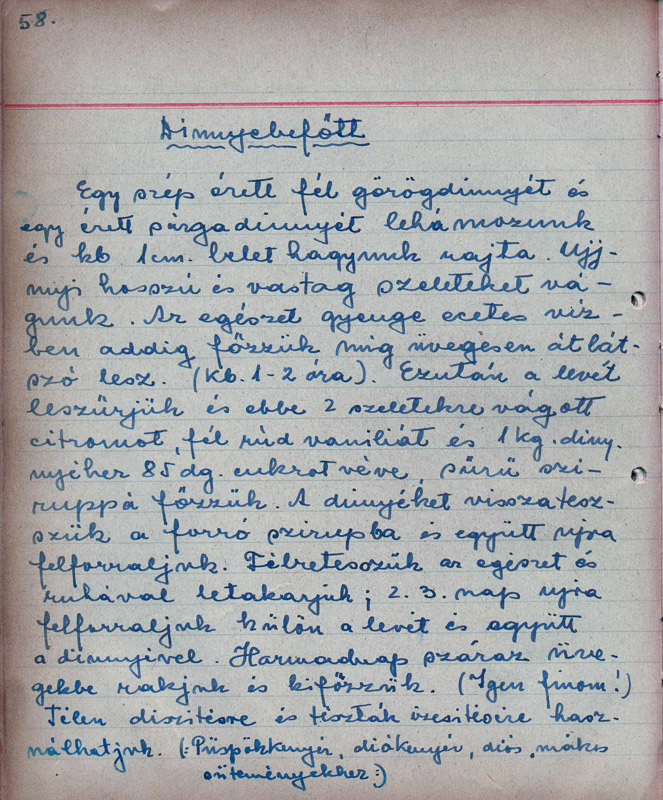 58.
Dinnyebefőtt
Egy szép érett fél görögdinnyét és
egy érett sárgadinnyét lehámozunk
és kb 1 cm. belet hagyunk rajta. Ujj-
nyi hosszú és vastag szeleteket vá-
gunk. Az egészet gyenge ecetes víz-
ben addig főzzük, míg üvegesen átlát-
szó lesz. (Kb. 1-2 óra). Ezután a levét
leszűrjük és ebbe 2 szeletekre vágott
citromot, fél rúd vaniliát és 1 kg. diny-
nyéhez 85 dg. cukrot véve, sűrű szi-
ruppá főzzük. A dinnyéket visszatesz-
szük a forró szirupba és együtt ujra
felforraljuk. Félretesszük az egészet és
ruhával letakarjuk; 2. 3. nap ujra
felforraljuk külön a levét és együtt
a dinnyivel. Harmadnap száraz üve-
gekbe rakjuk és kifőzzük. (Igen finom!)
Télen diszitésre és tészták izesitésére hasz-
nálhatjuk. (:Püspökkenyér, diákkenyér, diós, mákos
süteményekhez:)